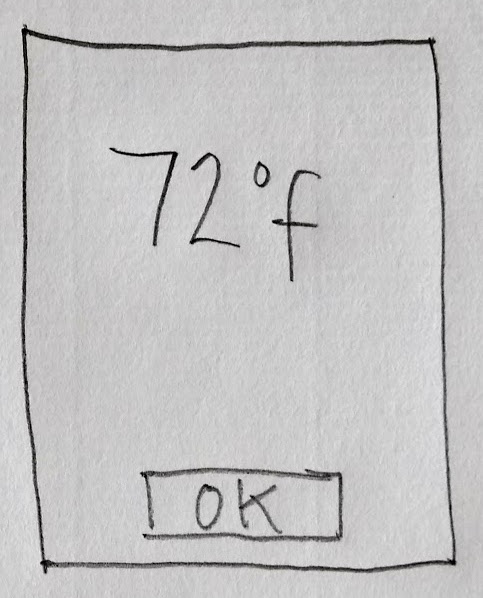 72°f
OK